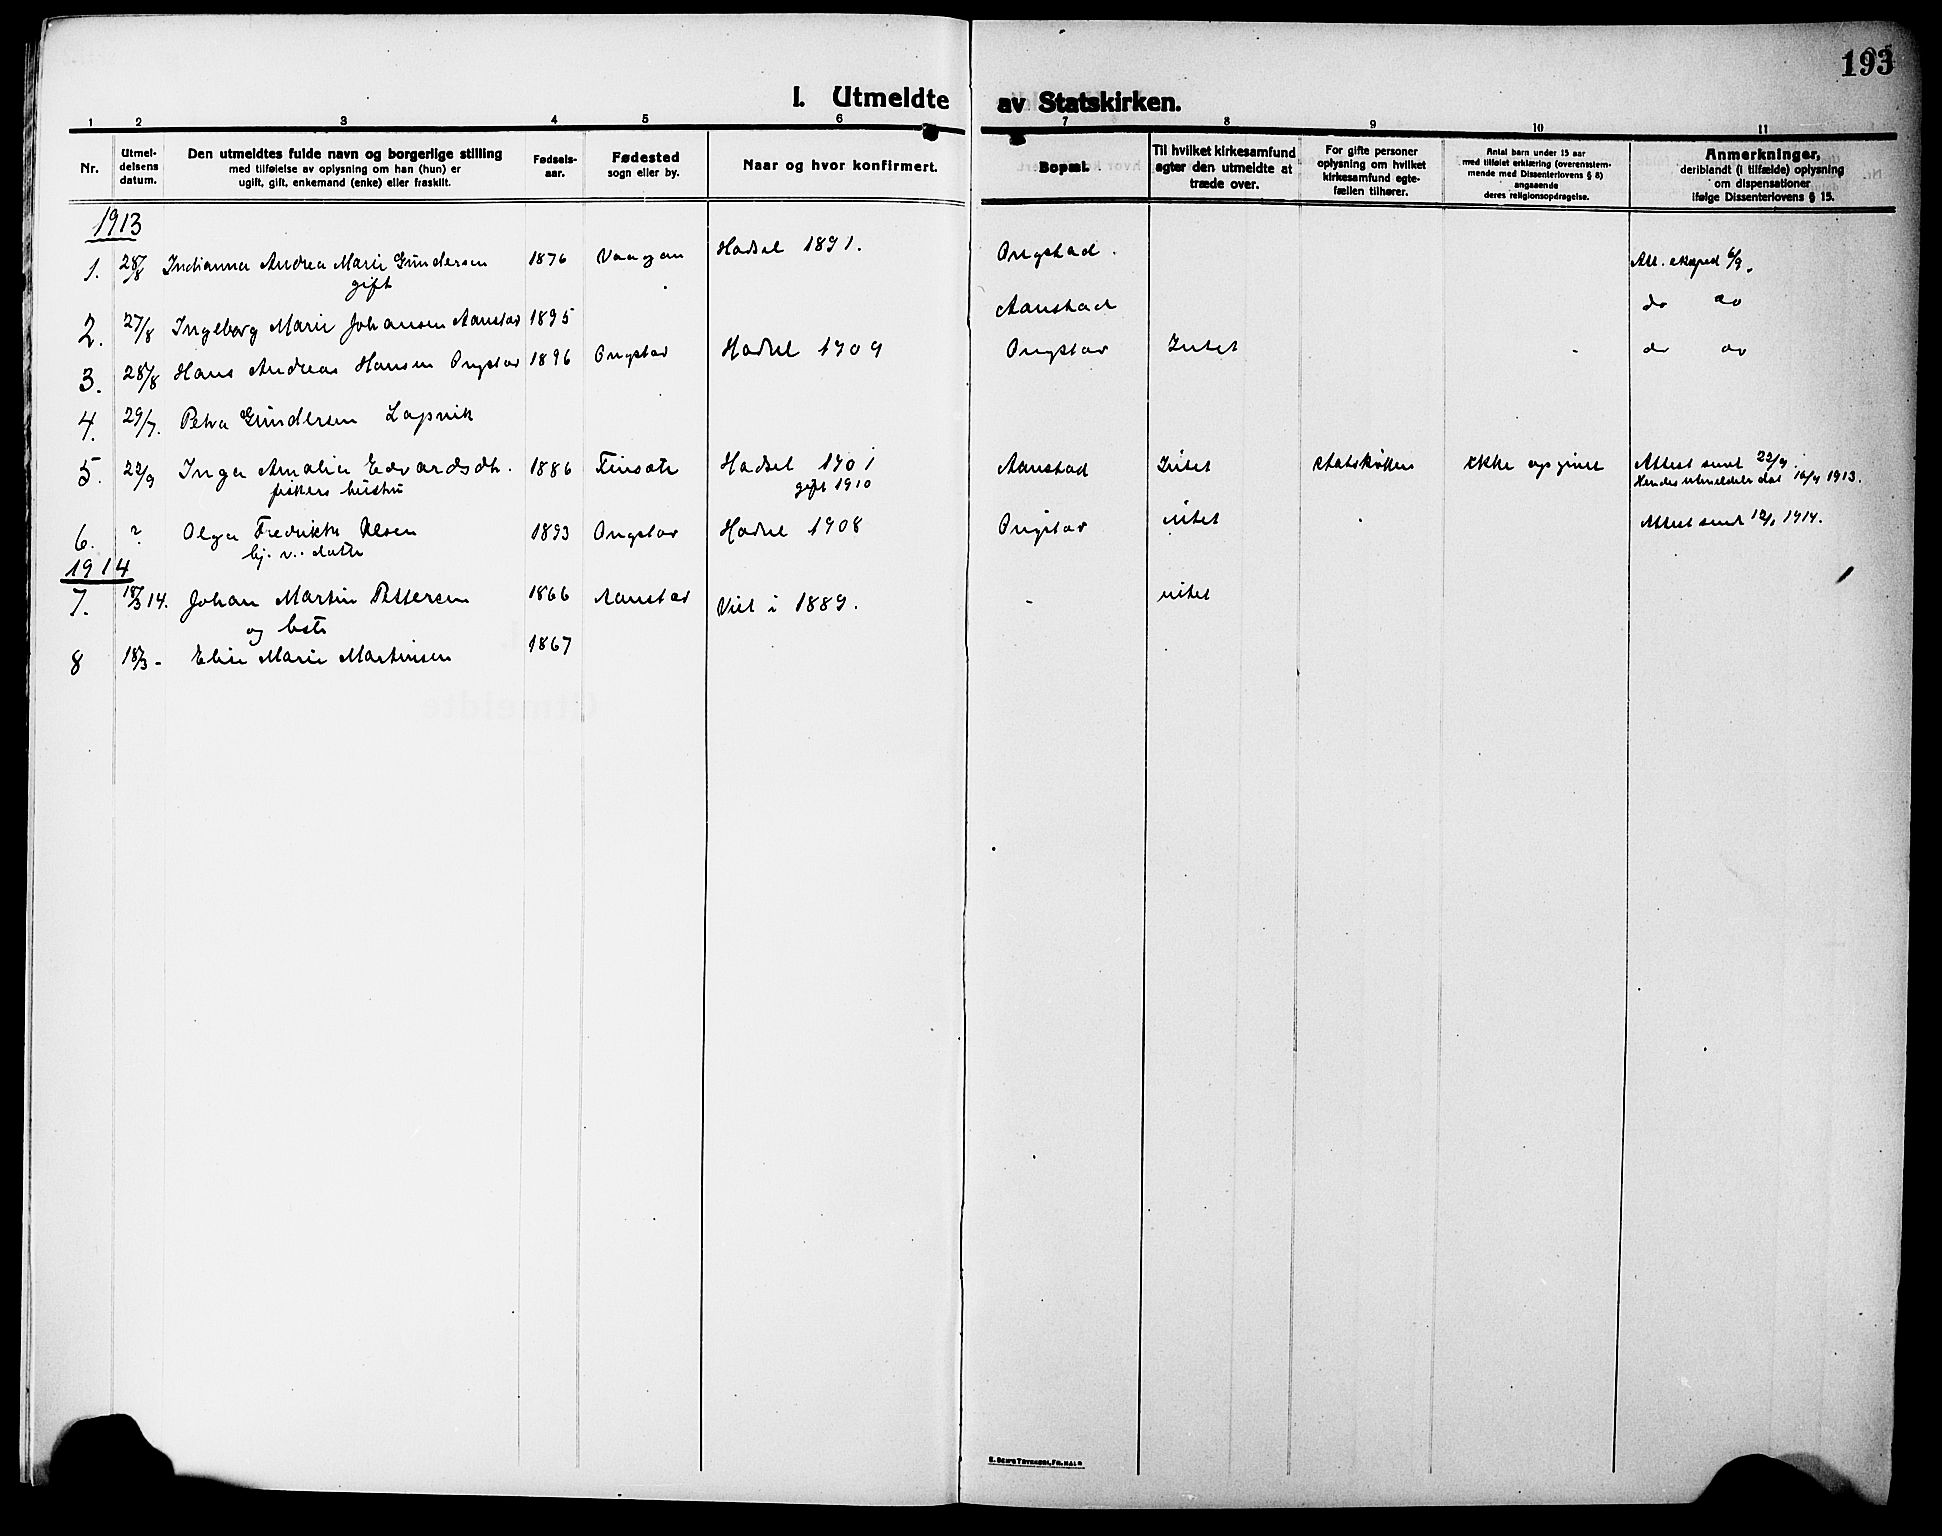 193
I. Utmeldte av Statskirken.
1 2 3 4 5 6 7 8 9 10 11
Nr.
Utmel-
delsens
datum.
Den utmeldtes fulde navn og borgerlige stilling
med tilføielse av oplysning om han (hun) er
ugift, gift, enkemand (enke) eller fraskilt.
Fødsels-
aar.
Fødested
sogn eller by.
Naar og hvor konfirmert.
Bopæl.
Til hvilket kirkesamfund
agter den utmeldte at
træde over.
For gifte personer
oplysning om hvilket
kirkesamfund egte-
fællen tilhører.
Antal barn under 15 aar
med tilføiet erklæring (overensstem-
mende med Dissenterlovens § 8)
angaaende
deres religionsopdragelse.
Anmerkninger,
deriblandt (i tilfælde) oplysning
om dispensationer
ifølge Dissenterlovens § 15.
1913
1. 28/8 Indianna Andrea Marie Gundersen 1876 Vaagan Hadsel 1891. Ongstad. Att. eksped 6/9.
gift
2. 27/8 Ingeborg Marie Johansen Aanstad 1895 Aanstad do do
3. 28/8 Hans Andreas Hansen Ongstad 1896 Ongstad Hadsel 1909 Ongstad Intet do do
4. 29/7. Petra Gundersen
5. 22/9 Inga Amalia Edvardsdtr. 1886 Finsæter Hadsel 1901 Aanstad Intet statskirken ikke opgivet Attest sendt 22/9.
fiskers hustru gift 1910 Hendes utmeldelse dat 1913.
6. ? Olga Fredrikke Olsen 1893 Ongstad Hadsel 1908 Ongstad intet Attest sendt 1914.
1914
7. 18/3 14. Johan Martin Pettersen 1866 Aanstad Viet i 1889. - intet
og
8 18/3 - Elise Marie Martinsen 1867